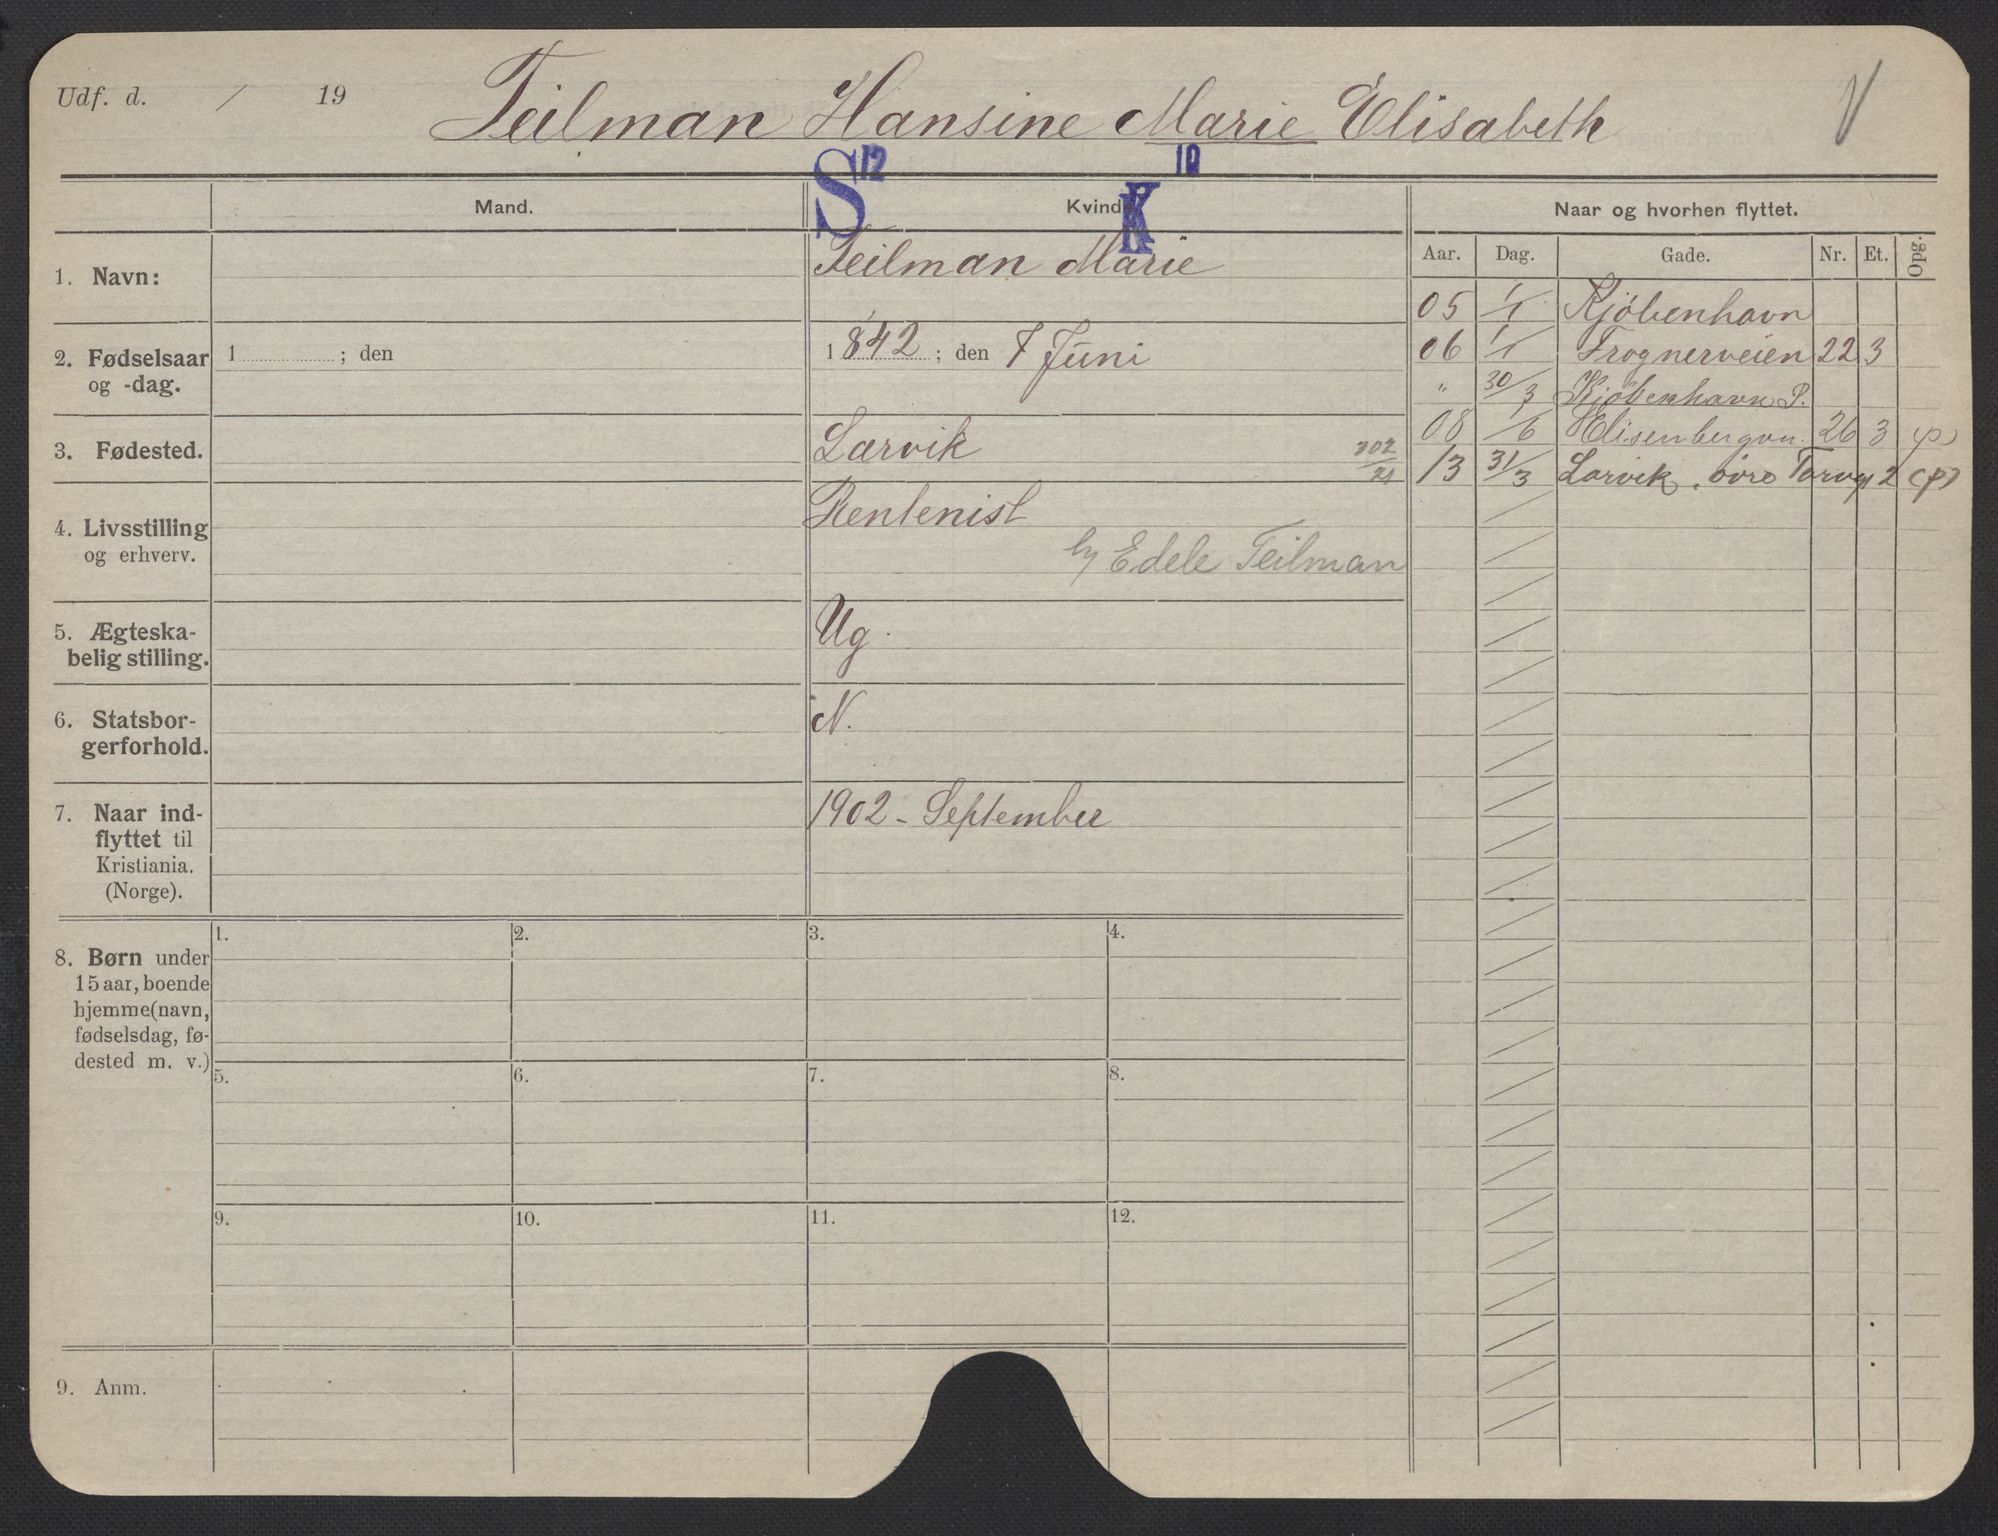 Udf. d. / 19
Teilman Hansine Marie Elisabeth
V
S 12 K 10
Mand.
Kvinde
Naar og hvorhen flyttet.
Aar. Dag. Gade. Nr. Et. Opg.
1. Navn:
Teilman Marie
2. Fødselsaar
og -dag.
1 ; den
1842 ; den 7 Juni
3. Fødested.
Larvik
302
21
4. Livsstilling
og erhverv.
Rentenist
h/ Edele Teilman
5. Ægteska-
belig stilling.
Ug.
6. Statsbor-
gerforhold.
N.
7. Naar ind-
flyttet til
Kristiania.
(Norge).
1902 - September
05 1/1 Kjöbenhavn
06 1/1 Frognerveien 22 3
" 30/3 Kjöbenhavn P.
08 1/6 Elisenbergvn. 26 3 (p)
13 31/3 Larvik, övre Torvg 2 (p)
8. Børn under
15 aar, boende
hjemme (navn,
fødselsdag, fø-
dested m. v.)
1. 2. 3. 4.
5. 6. 7. 8.
9. 10. 11. 12.
9. Anm.